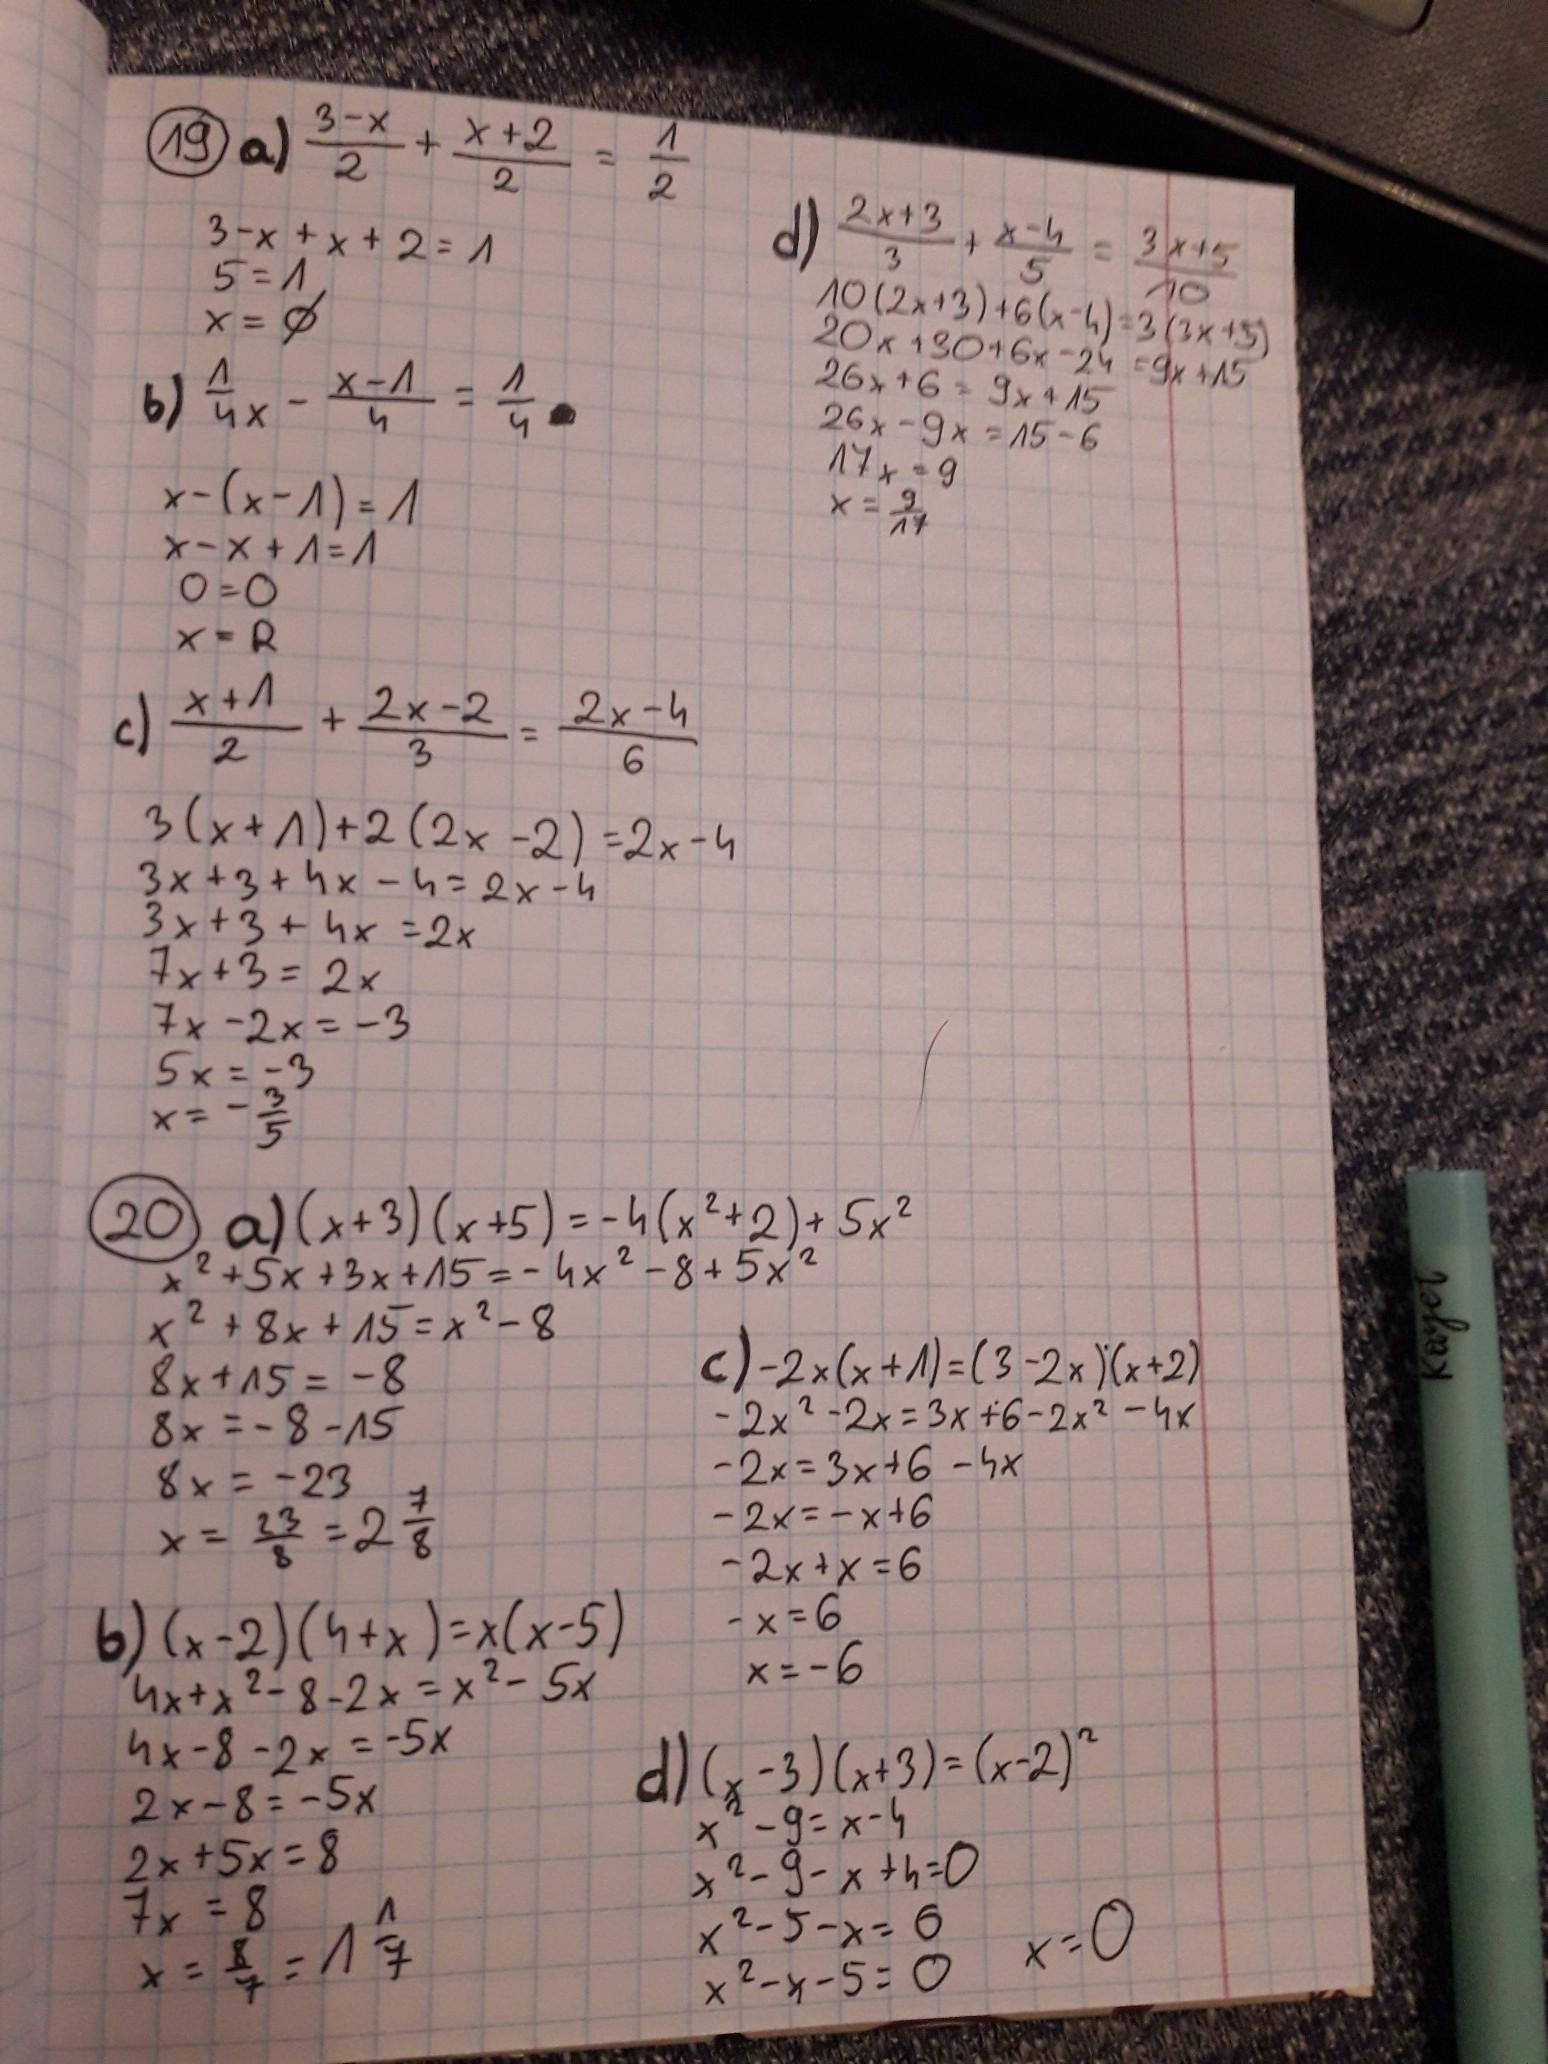 19 a) (3-x)/2 + (x+2)/2 = 1/2
3-x+x+2=1
5=1
x=∅
b) 1/4x - (x-1)/4 = 1/4
x-(x-1)=1
x-x+1=1
0=0
x=R
c) (x+1)/2 + (2x-2)/3 = (2x-4)/6
3(x+1)+2(2x-2)=2x-4
3x+3+4x-4=2x-4
3x+3+4x=2x
7x+3=2x
7x-2x=-3
5x=-3
x=-3/5
d) (2x+3)/3 + (x-4)/5 = (3x+5)/10
10(2x+3)+6(x-4)=3(3x+5)
20x+30+6x-24=9x+15
26x+6=9x+15
26x-9x=15-6
17x=9
x=9/17
20 a) (x+3)(x+5)=-4(x²+2)+5x²
x²+5x+3x+15=-4x²-8+5x²
x²+8x+15=x²-8
8x+15=-8
8x=-8-15
8x=-23
x=23/8=2 7/8
b) (x-2)(4+x)=x(x-5)
4x+x²-8-2x=x²-5x
4x-8-2x=-5x
2x-8=-5x
2x+5x=8
7x=8
x=8/7=1 1/7
c) -2x(x+1)=(3-2x)(x+2)
-2x²-2x=3x+6-2x²-4x
-2x=3x+6-4x
-2x=-x+6
-2x+x=6
-x=6
x=-6
d) (x-3)(x+3)=(x-2)²
x²-9=x-4
x²-9-x+4=0
x²-5-x=0
x²-x-5=0
x=0
Kayet